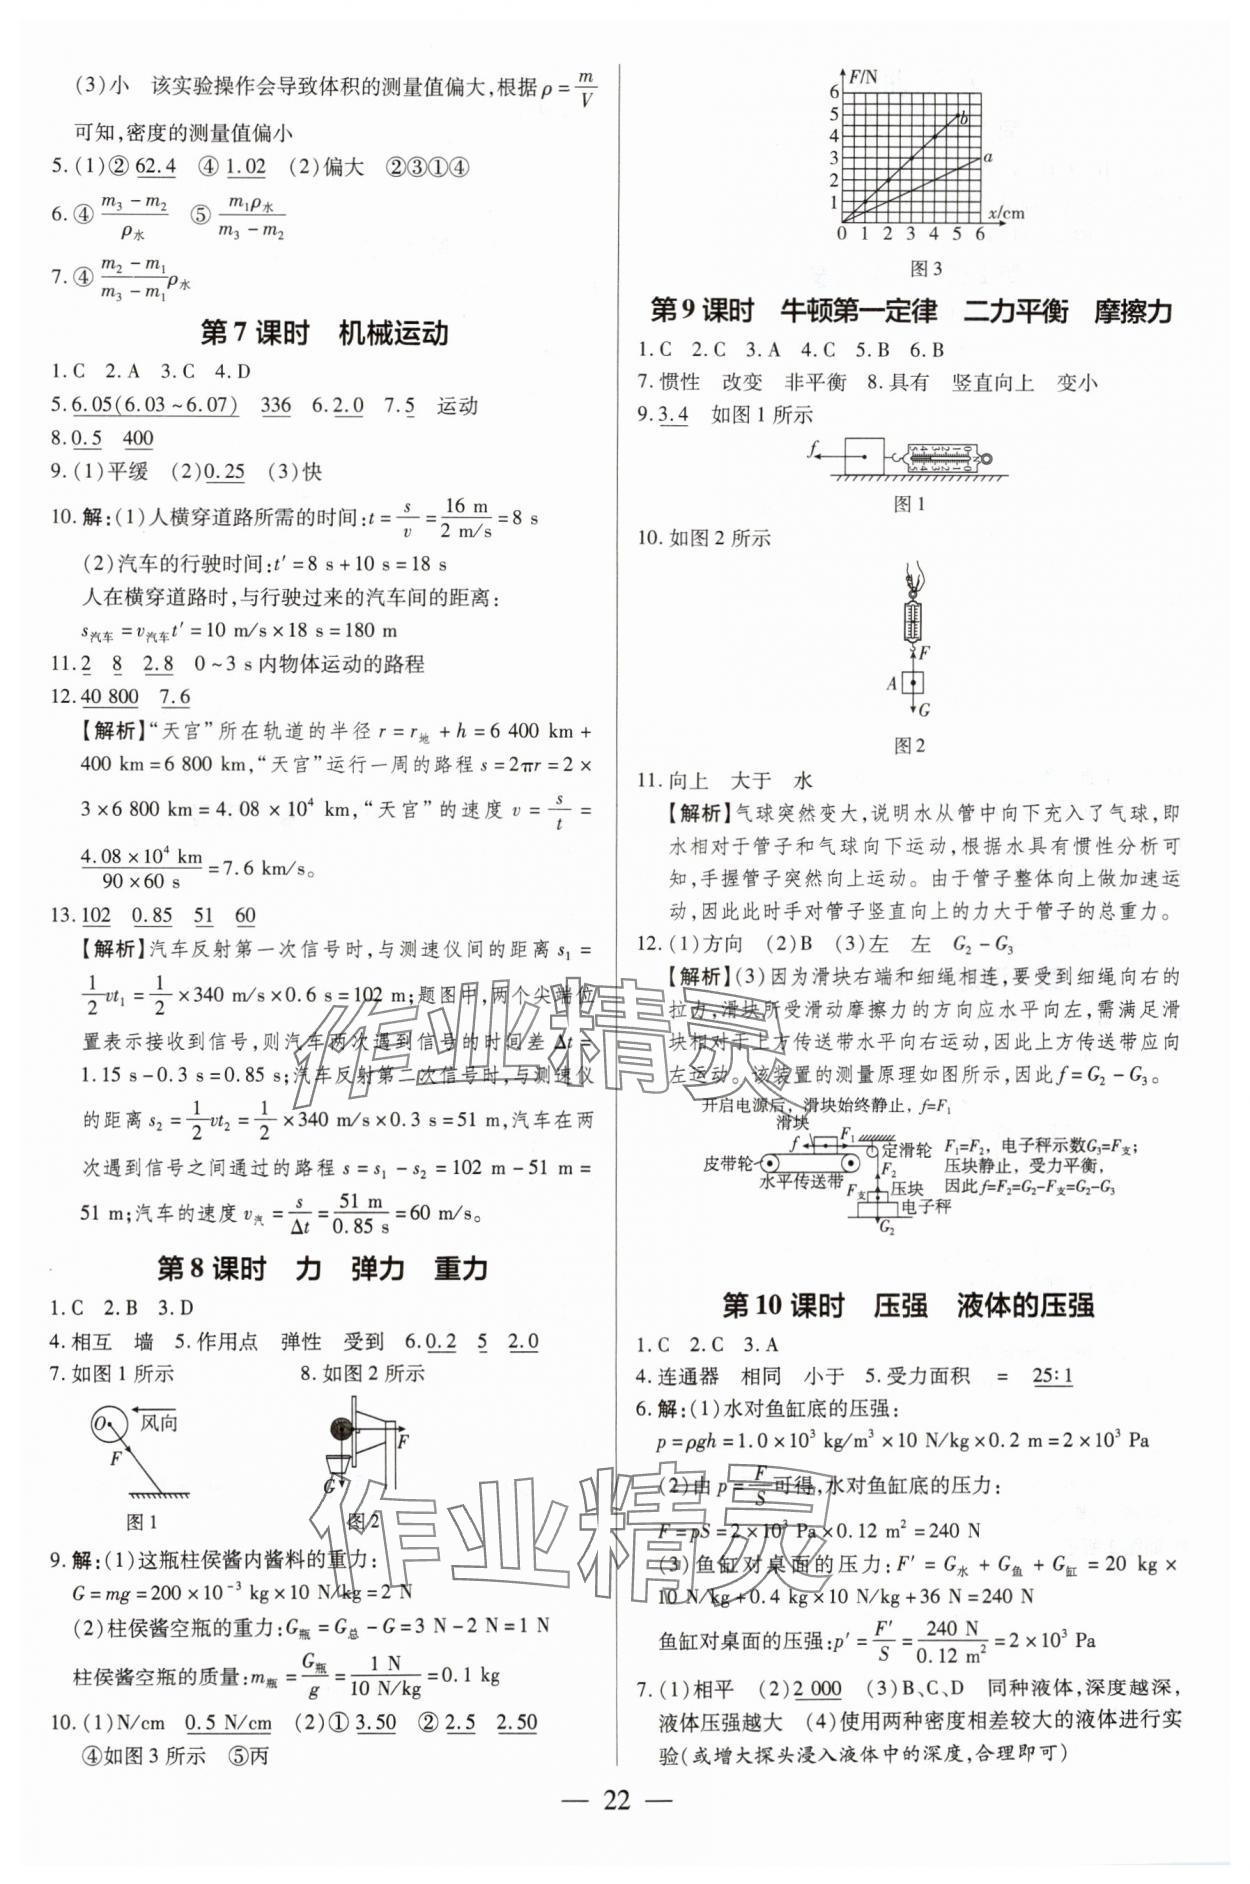 (3)小　该实验操作会导致体积的测量值偏大,根据ρ=m/V
可知,密度的测量值偏小
5.(1)②62.4　④1.02　(2)偏大　②③①④
6.④(m₃-m₂)/ρ水　⑤m₁ρ水/(m₃-m₂)
7.④(m₂-m₁)/(m₃-m₁)ρ水
第7课时　机械运动
1.C　2.A　3.C　4.D
5.6.05(6.03~6.07)　336　6.2.0　7.5　运动
8.0.5　400
9.(1)平缓　(2)0.25　(3)快
10.解:(1)人横穿道路所需的时间:t=s/v=16 m/2 m/s=8 s
(2)汽车的行驶时间:t′=8 s+10 s=18 s
人在横穿道路时,与行驶过来的汽车间的距离:
s汽车=v汽车t′=10 m/s×18 s=180 m
11.2　8　2.8　0~3 s内物体运动的路程
12.40 800　7.6
【解析】“天宫”所在轨道的半径r=r地+h=6 400 km+
400 km=6 800 km,“天宫”运行一周的路程s=2πr=2×
3×6 800 km=4.08×10⁴ km,“天宫”的速度v=s/t=
4.08×10⁴ km/90×60 s=7.6 km/s。
13.102　0.85　51　60
【解析】汽车反射第一次信号时,与测速仪间的距离s₁=
1/2vt₁=1/2×340 m/s×0.6 s=102 m;题图中,两个尖端位
置表示接收到信号,则汽车两次遇到信号的时间差Δt=
1.15 s-0.3 s=0.85 s;汽车反射第二次信号时,与测速仪
的距离s₂=1/2vt₂=1/2×340 m/s×0.3 s=51 m,汽车在两
次遇到信号之间通过的路程s=s₁-s₂=102 m-51 m=
51 m;汽车的速度v汽=s/Δt=51 m/0.85 s=60 m/s。
第8课时　力　弹力　重力
1.C　2.B　3.D
4.相互　墙　5.作用点　弹性　受到　6.0.2　5　2.0
7.如图1所示　8.如图2所示
O　风向　F
F　G
图1　图2
9.解:(1)这瓶柱侯酱内酱料的重力:
G=mg=200×10⁻³ kg×10 N/kg=2 N
(2)柱侯酱空瓶的重力:G瓶=G总-G=3 N-2 N=1 N
柱侯酱空瓶的质量:m瓶=G瓶/g=1 N/10 N/kg=0.1 kg
10.(1)N/cm　0.5 N/cm　(2)①3.50　②2.5　2.50
④如图3所示　⑤丙
F/N
6
5　b
4
3　a
2
1　x/cm
0 1 2 3 4 5 6
图3
第9课时　牛顿第一定律　二力平衡　摩擦力
1.C　2.C　3.A　4.C　5.B　6.B
7.惯性　改变　非平衡　8.具有　竖直向上　变小
9.3.4　如图1所示
f
图1
10.如图2所示
F
A
G
图2
11.向上　大于　水
【解析】气球突然变大,说明水从管中向下充入了气球,即
水相对于管子和气球向下运动,根据水具有惯性分析可
知,手握管子突然向上运动。由于管子整体向上做加速运
动,因此此时手对管子竖直向上的力大于管子的总重力。
12.(1)方向　(2)B　(3)左　左　G₂-G₃
【解析】(3)因为滑块右端和细绳相连,要受到细绳向右的
拉力,滑块所受滑动摩擦力的方向应水平向左,需满足滑
块相对于上方传送带水平向右运动,因此上方传送带应向
左运动。该装置的测量原理如图所示,因此f=G₂-G₃。
开启电源后，滑块始终静止，f=F₁
滑块
f　F₁　定滑轮　F₁=F₂，电子秤示数G₃=F支；
皮带轮　F₂　压块静止，受力平衡，
水平传送带　F支　压块　因此f=F₂=G₂-F支=G₂-G₃
电子秤
G₂
第10课时　压强　液体的压强
1.C　2.C　3.A
4.连通器　相同　小于　5.受力面积　=　25∶1
6.解:(1)水对鱼缸底的压强:
p=ρgh=1.0×10³ kg/m³×10 N/kg×0.2 m=2×10³ Pa
(2)由p=F/S可得,水对鱼缸底的压力:
F=pS=2×10³ Pa×0.12 m²=240 N
(3)鱼缸对桌面的压力:F′=G水+G鱼+G缸=20 kg×
10 N/kg+0.4 kg×10 N/kg+36 N=240 N
鱼缸对桌面的压强:p′=F′/S=240 N/0.12 m²=2×10³ Pa
7.(1)相平　(2)2 000　(3)B、C、D　同种液体,深度越深,
液体压强越大　(4)使用两种密度相差较大的液体进行实
验(或增大探头浸入液体中的深度,合理即可)
— 22 —
作业精灵
作业精灵